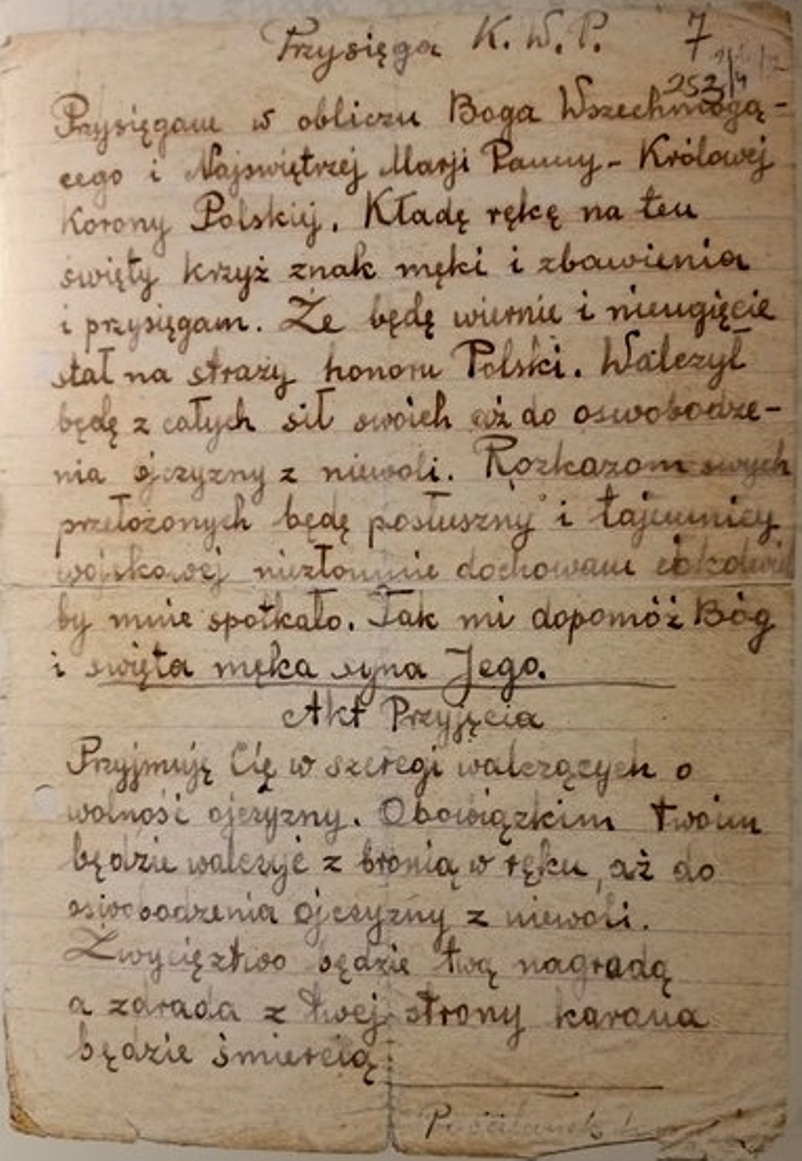 Przysięga K. W. P. 7
252/4
Przysięgam w obliczu Boga Wszechmogą-
cego i Najświętrzej Marji Panny - Królowej
Korony Polskiej. Kładę rękę na ten
święty krzyż znak męki i zbawienia
i przysięgam. Że będę wiernie i nieugięcie
stał na straży honoru Polski. Walczył
będę z całych sił swoich aż do oswobodze-
nia ojczyzny z niewoli. Rozkazom swych
przełożonych będę posłuszny i tajemnicy
wojskowej niezłomnie dochowam cokolwiek
by mnie spotkało. Tak mi dopomóż Bóg
i święta męka syna Jego.
Akt Przyjęcia
Przyjmuję Cię w szeregi walczących o
wolność ojczyzny. Obowiązkim twoim
będzie walczyć z bronią w ręku, aż do
oswobodzenia ojczyzny z niewoli.
Zwycięztwo będzie twą nagrodą
a zdrada z twej strony karana
będzie śmiercią